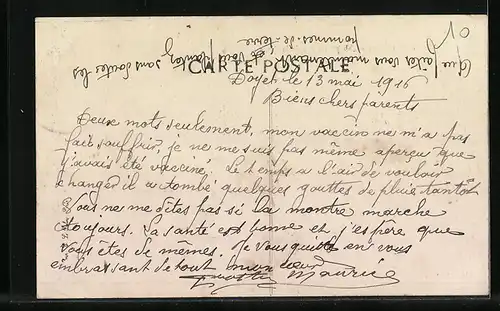 10
Que faites vous maintenant
et vous plantez sans doute les
pommes-de-terre
CARTE POSTALE
Doyet le 13 mai 1916
Biens chers parents
Deux mots seulement, mon vaccin ne m'a pas
fait souffrir, je ne me suis pas même aperçu que
j'avais été vacciné. Le temps a l'air de vouloir
changer il a tombé quelques gouttes de pluie tantôt
Vous ne me dites pas si la montre marche
toujours. La santé est bonne et j'espère que
vous êtes de mêmes. Je vous quitte en vous
embrassant de tout mon cœur
Maurice